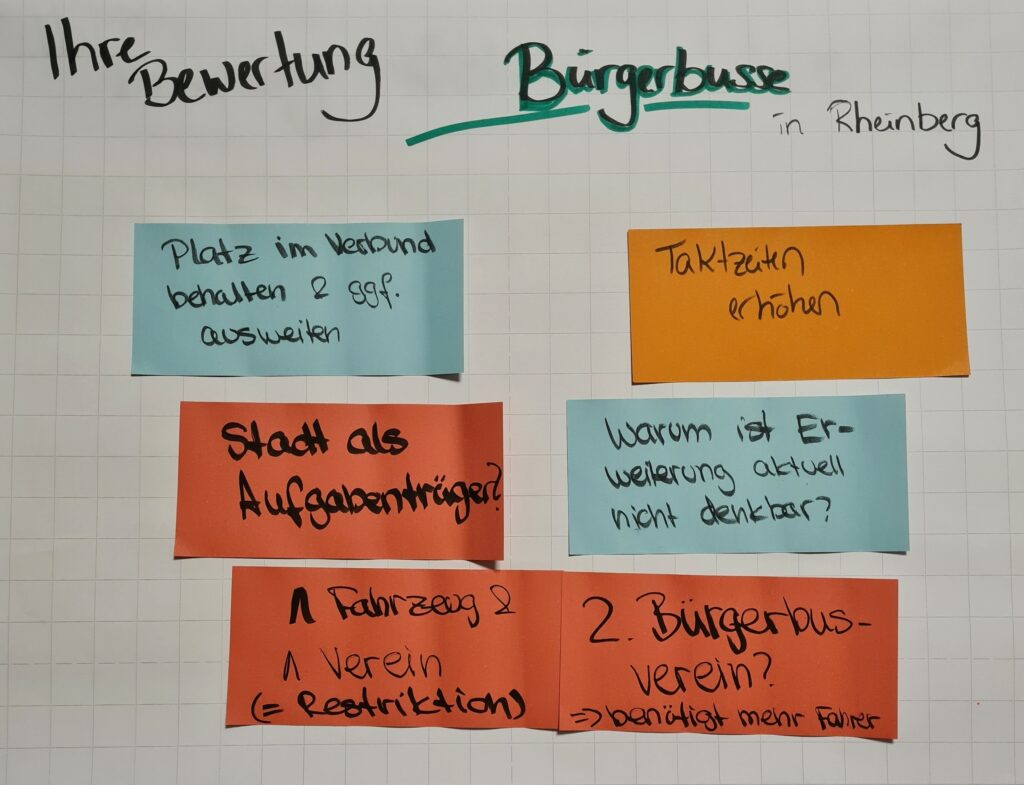 Ihre
Bewertung
Bürgerbusse
in Rheinberg
Platz im Verbund
behalten & ggf.
ausweiten
Taktzeiten
erhöhen
Stadt als
Aufgabenträger?
Warum ist Er-
weiterung aktuell
nicht denkbar?
1 Fahrzeug &
1 Verein
(= Restriktion)
2. Bürgerbus-
verein?
=> benötigt mehr Fahrer